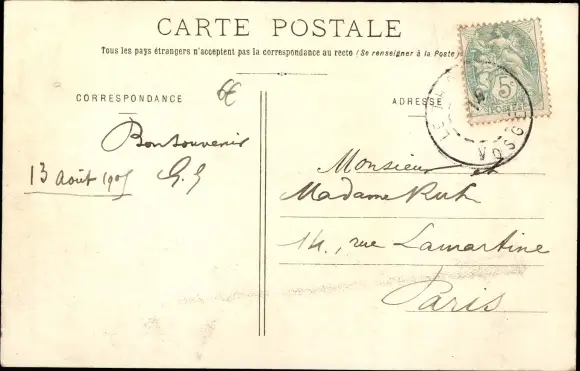 CARTE POSTALE
Tous les pays étrangers n'acceptent pas la correspondance au recto (Se renseigner à la Poste)
6€
CORRESPONDANCE
ADRESSE
5c
POSTES
VOSGES
Bon souvenir
13 Août 1905 G. G
Monsieur et
Madame Ruh
14, rue Lamartine
Paris